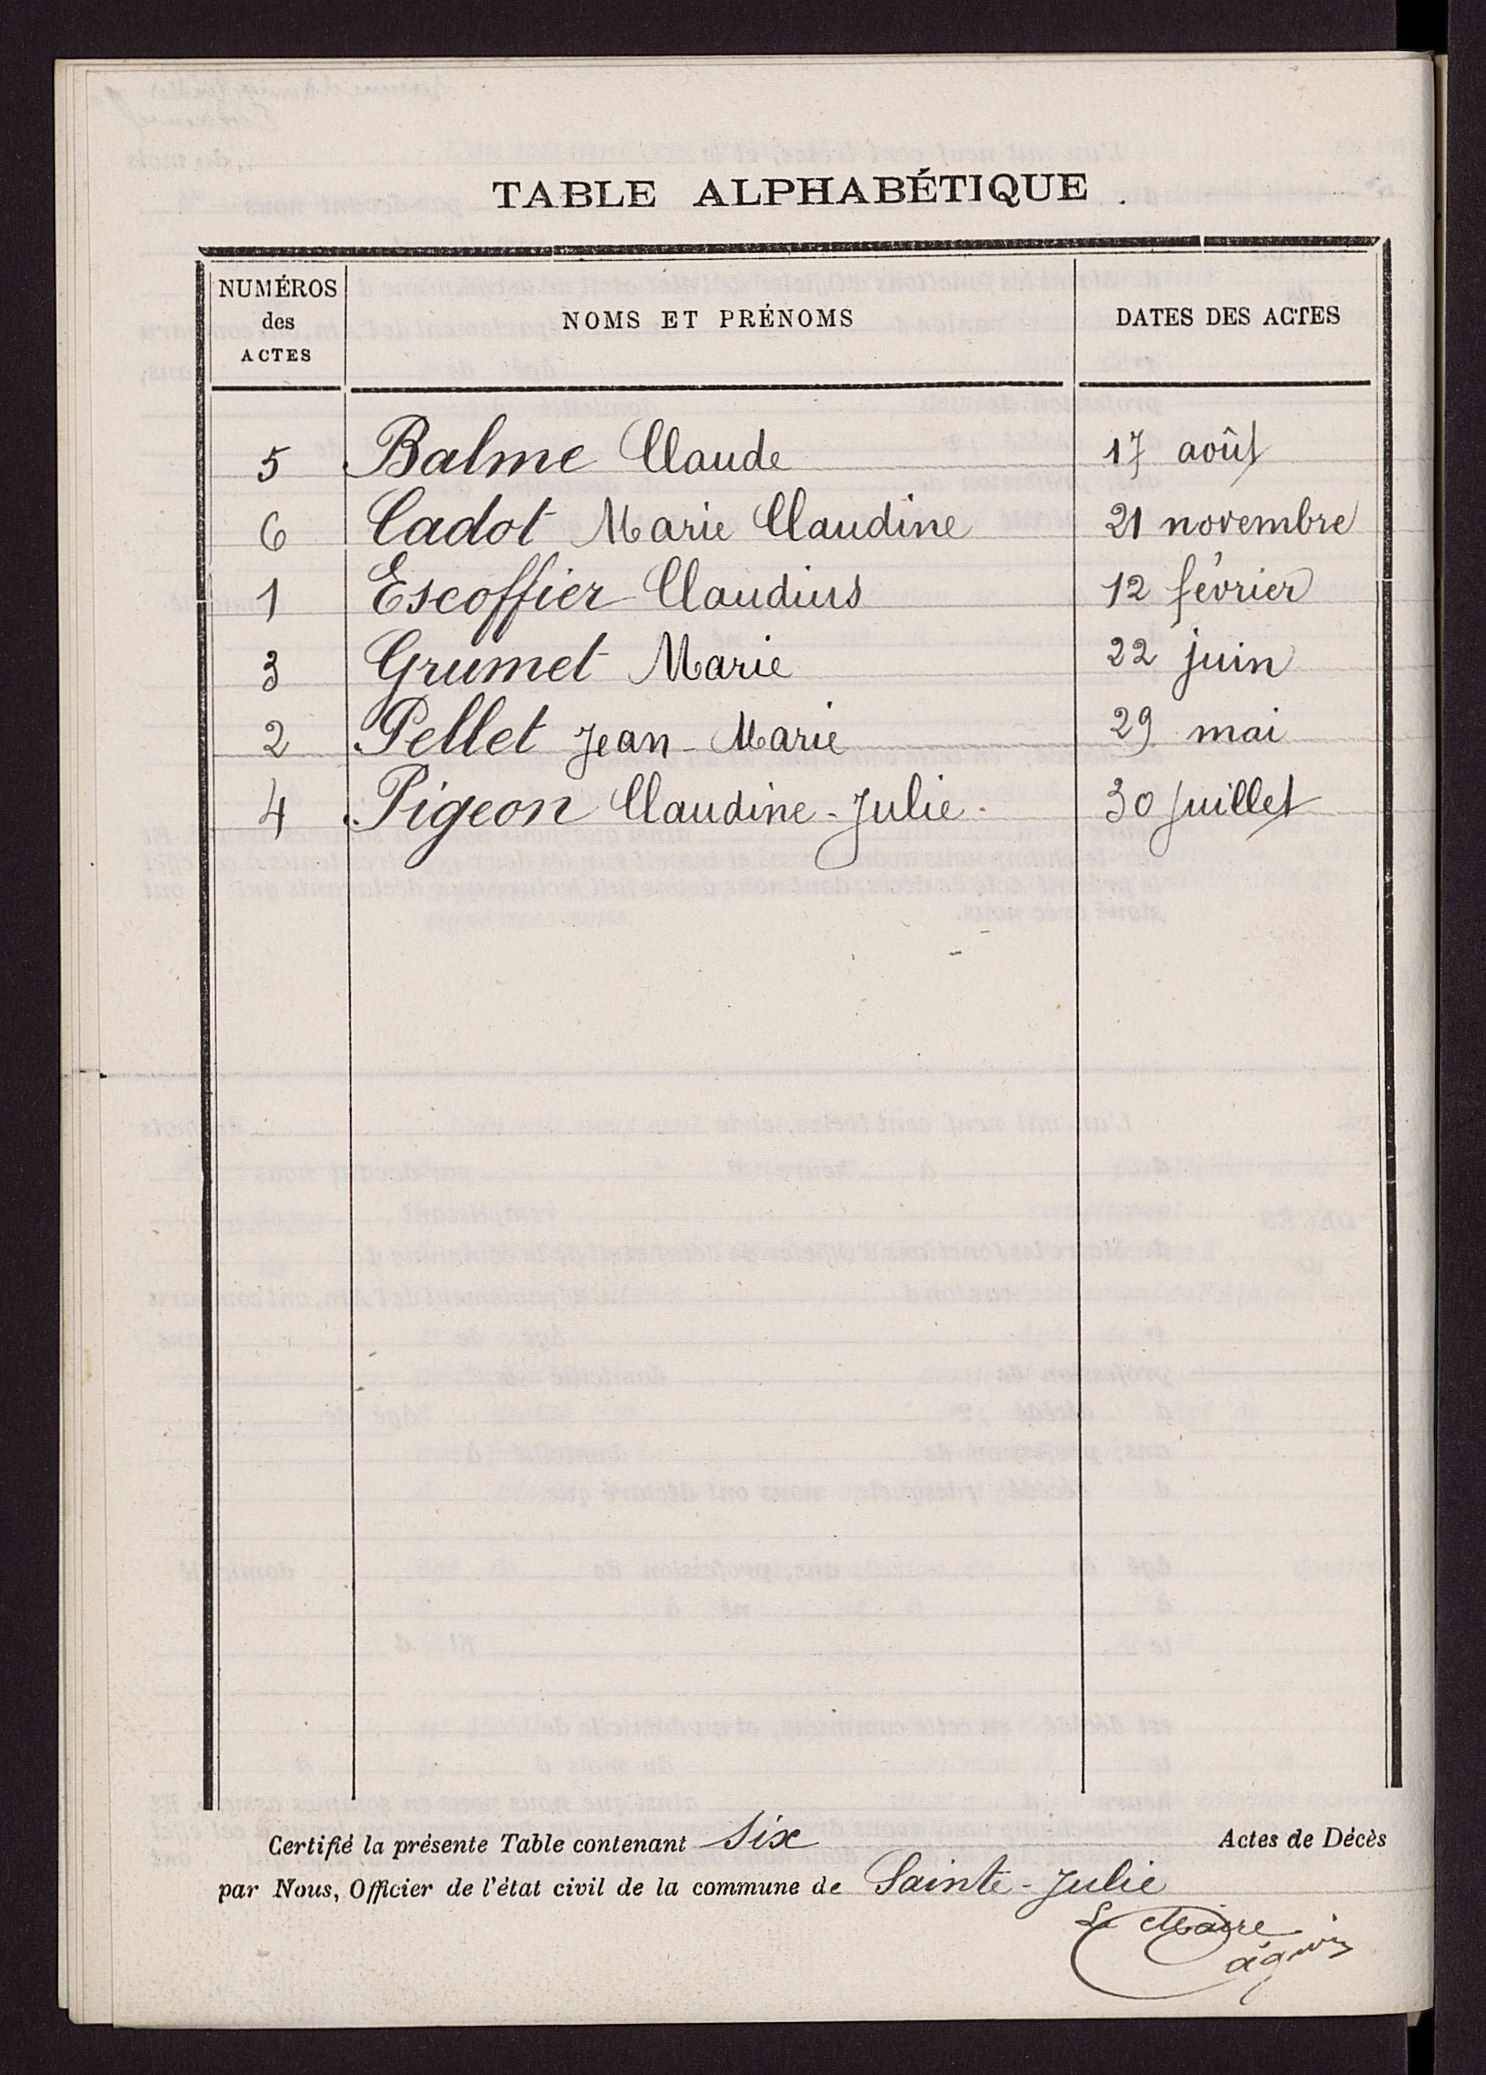 TABLE ALPHABÉTIQUE.
NUMÉROS des ACTES NOMS ET PRÉNOMS DATES DES ACTES
5 Balme Claude 17 août
6 Cadot Marie Claudine 21 novembre
1 Escoffier Claudius 12 février
3 Grumet Marie 22 juin
2 Pellet Jean-Marie 29 mai
4 Pigeon Claudine-Julie 30 juillet
Certifié la présente Table contenant Six Actes de Décès
par Nous, Officier de l'état civil de la commune de Sainte-Julie
Le Maire